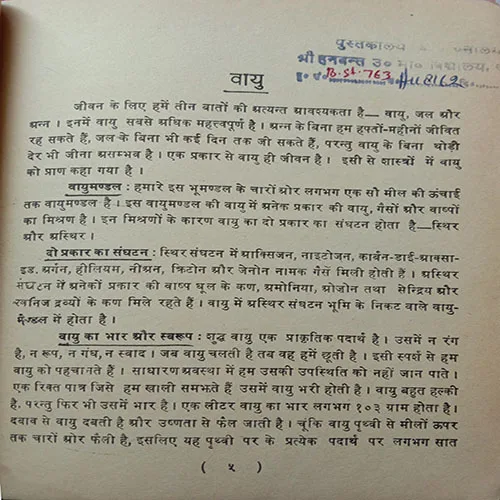 पुस्तकालय
श्री हनवन्त उ० मा० विद्यालय,
B.St.763
वायु
जीवन के लिए हमें तीन बातों की अत्यन्त आवश्यकता है— वायु, जल और
अन्न । इनमें वायु सबसे अधिक महत्त्वपूर्ण है । अन्न के बिना हम हफ्तों-महीनों जीवित
रह सकते हैं, जल के बिना भी कई दिन तक जी सकते हैं, परन्तु वायु के बिना थोड़ी
देर भी जीना असम्भव है । एक प्रकार से वायु ही जीवन है । इसी से शास्त्रों में वायु
को प्राण कहा गया है ।
वायुमण्डल : हमारे इस भूमण्डल के चारों ओर लगभग एक सौ मील की ऊंचाई
तक वायुमण्डल है । इस वायुमण्डल की वायु में अनेक प्रकार की वायु, गैसों और वाष्पों
का मिश्रण है । इन मिश्रणों के कारण वायु का दो प्रकार का संघटन होता है—स्थिर
और अस्थिर ।
दो प्रकार का संघटन : स्थिर संघटन में आक्सिजन, नाइटोजन, कार्बन-डाई-आक्सा-
इड. अर्गन, हीलियम, नीअन, क्रिटोन और जेनोन नामक गैसें मिली होती हैं । अस्थिर
संघटन में अनेकों प्रकार की वाष्प धूल के कण, अमोनिया, ओजोन तथा सेन्द्रिय और
खनिज द्रव्यों के कण मिले रहते हैं । वायु में अस्थिर संघटन भूमि के निकट वाले वायु-
मण्डल में होता है ।
वायु का भार और स्वरूप : शुद्ध वायु एक प्राकृतिक पदार्थ है । उसमें न रंग
है, न रूप, न गंध, न स्वाद । जब वायु चलती है तब वह हमें छूती है । इसी स्पर्श से हम
वायु को पहचानते हैं । साधारण अवस्था में हम उसकी उपस्थिति को नहीं जान पाते ।
एक रिक्त पात्र जिसे हम खाली समझते हैं उसमें वायु भरी होती है । वायु बहुत हल्की
है. परन्तु फिर भी उसमें भार है । एक लीटर वायु का भार लगभग १०३ ग्राम होता है ।
दबाव से वायु दबती है और उष्णता से फैल जाती है । चूंकि वायु पृथ्वी से मीलों ऊपर
तक चारों ओर फैली है, इसलिए यह पृथ्वी पर के प्रत्येक पदार्थ पर लगभग सात
( ५ )